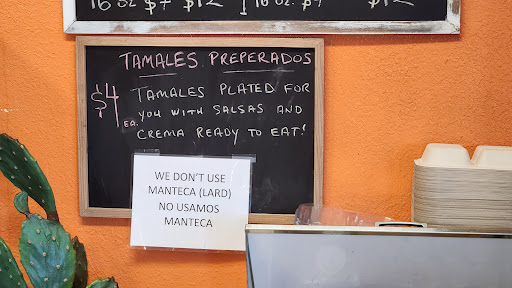 16 oz $7 $12 16 oz. $7 $12
TAMALES PREPERADOS
$4 EA.
TAMALES PLATED FOR
YOU WITH SALSAS AND
CREMA READY TO EAT!
WE DON'T USE
MANTECA (LARD)
NO USAMOS
MANTECA